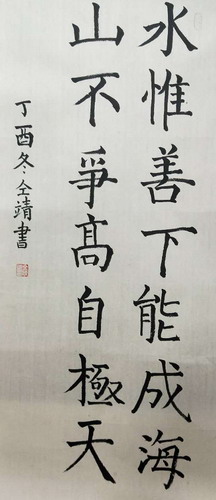 水惟善下能成海
山不爭髙自極天
丁酉冬仝靖書